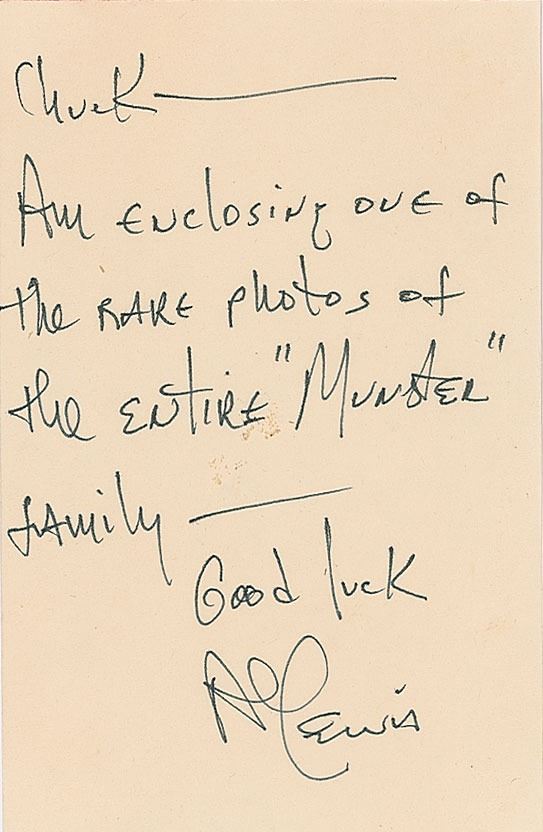 Chuck —
Am enclosing one of
the RARE photos of
the ENTIRE "MUNSTER"
family —
Good luck
Al Lewis